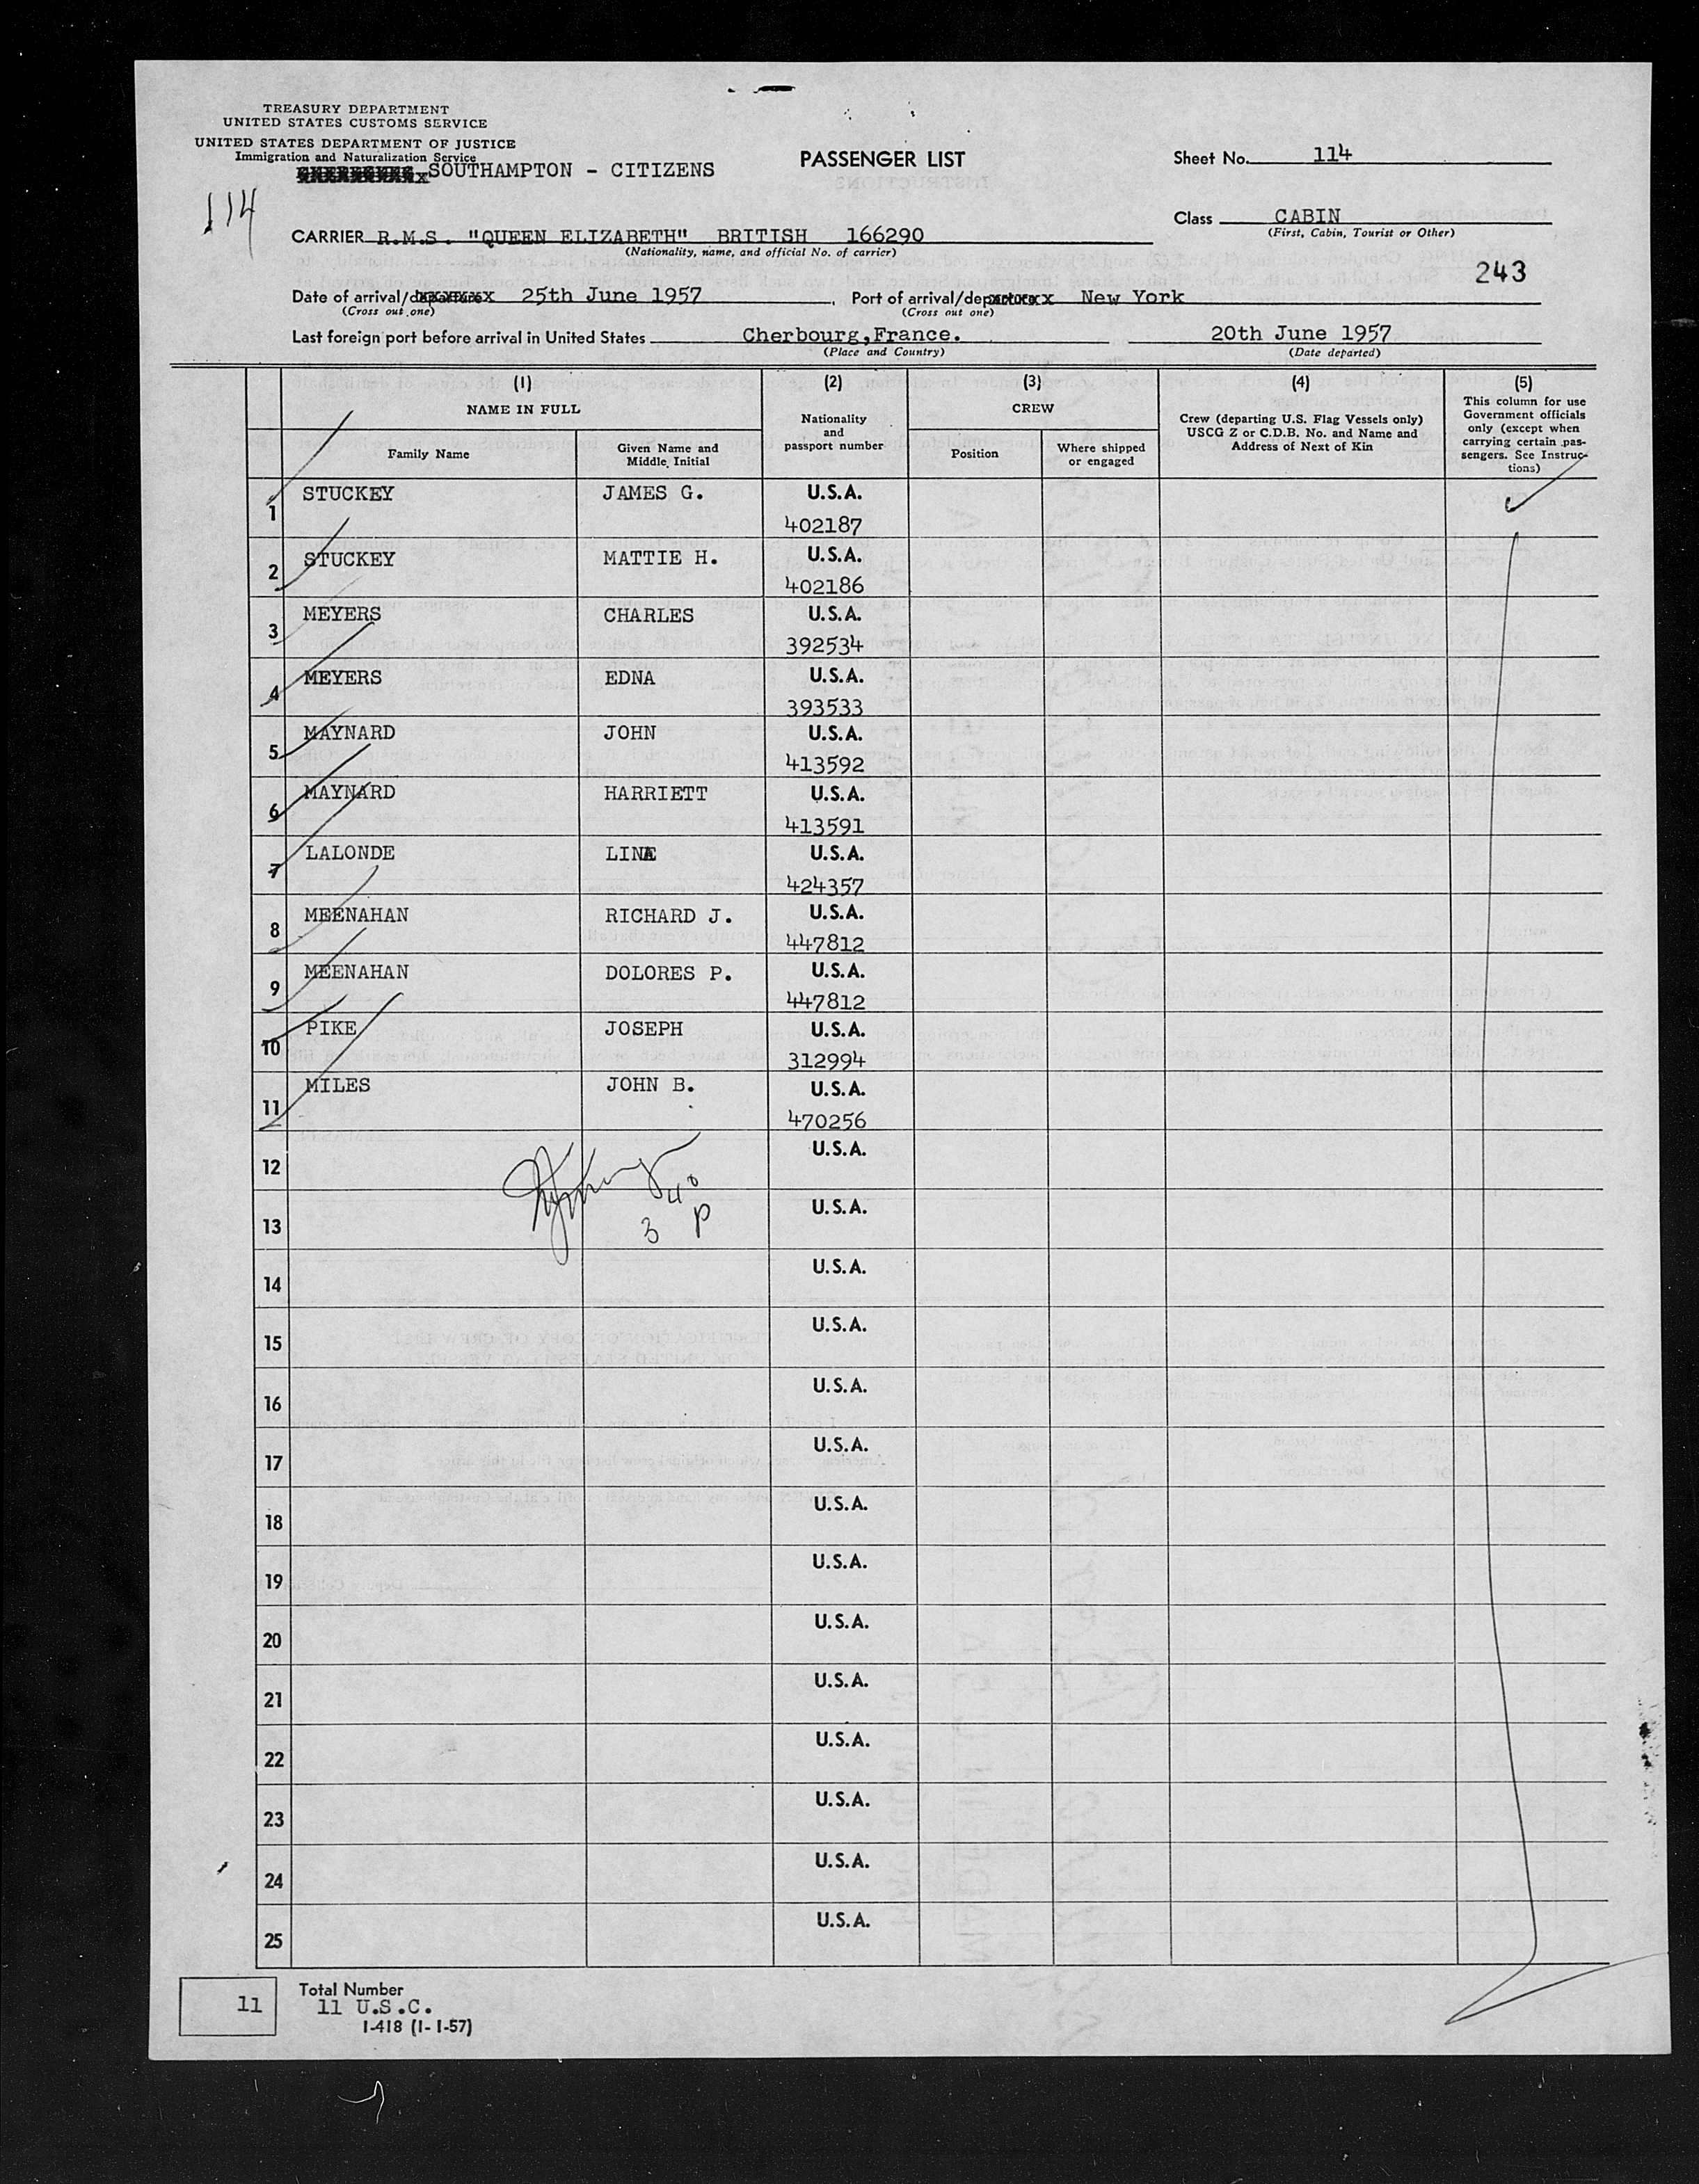 TREASURY DEPARTMENT
UNITED STATES CUSTOMS SERVICE
UNITED STATES DEPARTMENT OF JUSTICE
Immigration and Naturalization Service
SOUTHAMPTON - CITIZENS
PASSENGER LIST
Sheet No. 114
114
Class CABIN
(First, Cabin, Tourist or Other)
CARRIER R.M.S. "QUEEN ELIZABETH" BRITISH 166290
(Nationality, name, and official No. of carrier)
243
Date of arrival/departure 25th June 1957, Port of arrival/departure New York
(Cross out one) (Cross out one)
Last foreign port before arrival in United States Cherbourg,France. 20th June 1957
(Place and Country) (Date departed)
(1) (2) (3) (4) (5)
NAME IN FULL
Family Name
Given Name and
Middle Initial
Nationality
and
passport number
CREW
Position
Where shipped
or engaged
Crew (departing U.S. Flag Vessels only)
USCG Z or C.D.B. No. and Name and
Address of Next of Kin
This column for use
Government officials
only (except when
carrying certain pas-
sengers. See Instruc-
tions)
1 STUCKEY JAMES G. U.S.A.
402187
2 STUCKEY MATTIE H. U.S.A.
402186
3 MEYERS CHARLES U.S.A.
392534
4 MEYERS EDNA U.S.A.
393533
5 MAYNARD JOHN U.S.A.
413592
6 MAYNARD HARRIETT U.S.A.
413591
7 LALONDE U.S.A.
424357
8 MEENAHAN RICHARD J. U.S.A.
447812
9 MEENAHAN DOLORES P. U.S.A.
447812
10 PIKE JOSEPH U.S.A.
312994
11 MILES JOHN B. U.S.A.
470256
12 U.S.A.
40
13 U.S.A.
3 P
14 U.S.A.
15 U.S.A.
16 U.S.A.
17 U.S.A.
18 U.S.A.
19 U.S.A.
20 U.S.A.
21 U.S.A.
22 U.S.A.
23 U.S.A.
24 U.S.A.
25 U.S.A.
11 Total Number
11 U.S.C.
I-418 (1-1-57)